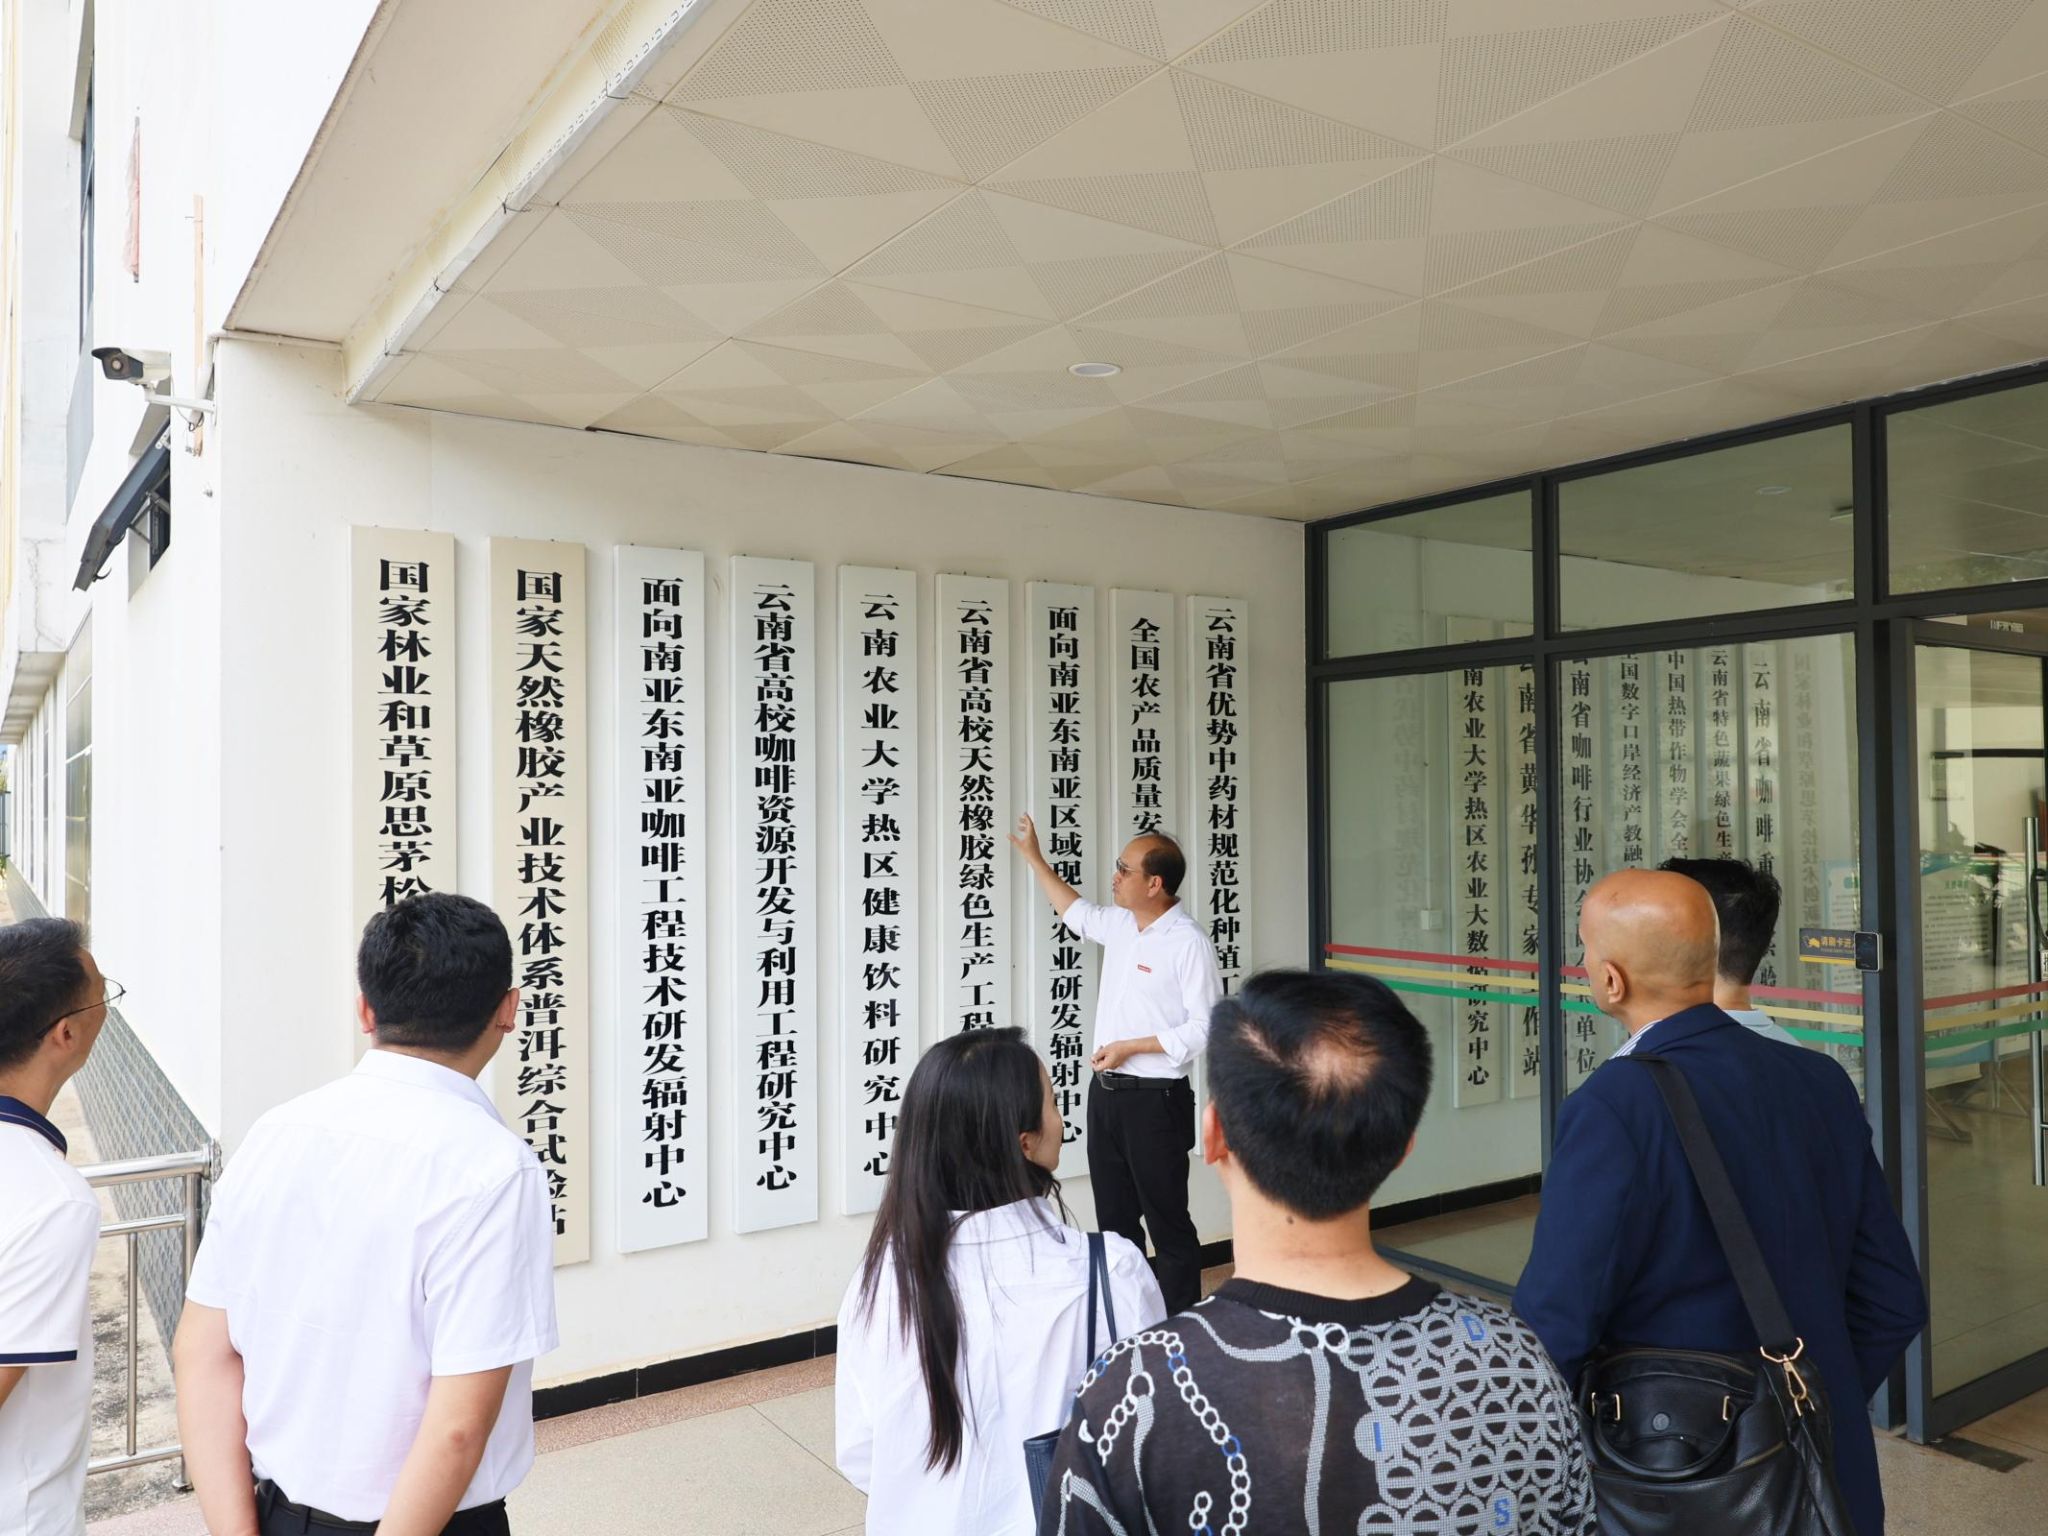 国家林业和草原思茅松
国家天然橡胶产业技术体系普洱综合试验站
面向南亚东南亚咖啡工程技术研发辐射中心
云南省高校咖啡资源开发与利用工程研究中心
云南农业大学热区健康饮料研究中心
云南省高校天然橡胶绿色生产工程
面向南亚东南亚区域现 农业研发辐射中心
全国农产品质量安
云南省优势中药材规范化种植工
南农业大学热区农业大数据研究中心
云南省黄华孙专家工作站
南省咖啡行业协会 单位
全国数字口岸经济产教融
中国热带作物学会全
云南省特色蔬果绿色生产
云南省咖啡重 实验
国家林业和草原思茅松技术创新
请刷卡进
D
I
S